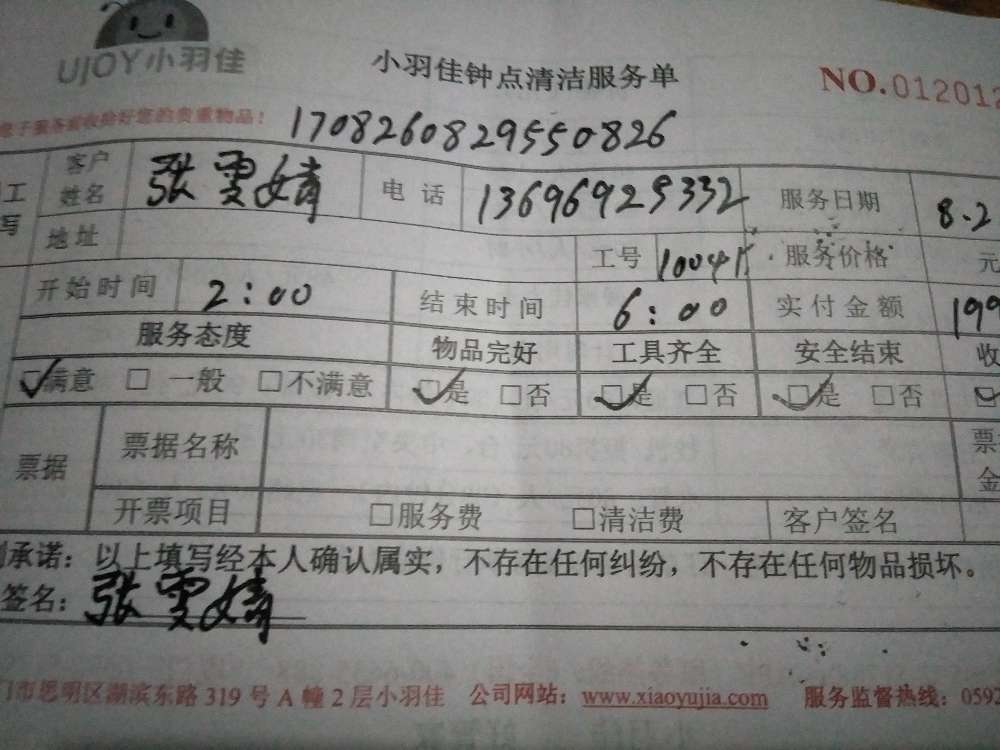 UJOY小羽佳
小羽佳钟点清洁服务单
NO.012012
您于服务前收拾好您的贵重物品!
17082608295550826
工写 客户姓名 张雯婧 电话 13696925332 服务日期 8.2
地址 工号 10041 服务价格 元
开始时间 2:00 结束时间 6:00 实付金额 199
服务态度 物品完好 工具齐全 安全结束 收
☑满意 □一般 □不满意 ☑是 □否 ☑是 □否 ☑是 □否
票据 票据名称 票 金
开票项目 □服务费 □清洁费 客户签名
承诺：以上填写经本人确认属实，不存在任何纠纷，不存在任何物品损坏。
签名：张雯婧
门市思明区湖滨东路 319 号 A 幢 2 层小羽佳 公司网站：www.xiaoyujia.com 服务监督热线：0592